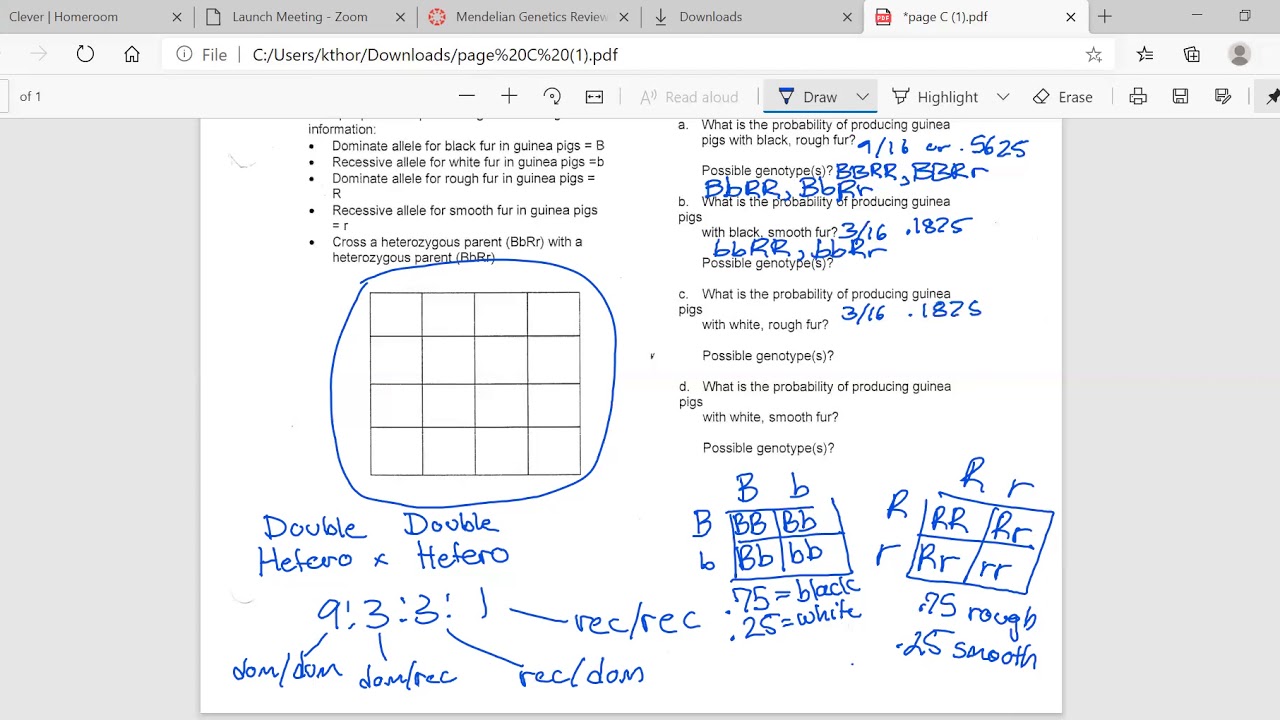 Clever | Homeroom
Launch Meeting - Zoom
Mendelian Genetics Review
Downloads
*page C (1).pdf
File
C:/Users/kthor/Downloads/page%20C%20(1).pdf
of 1
Read aloud
Draw
Highlight
Erase
information:
• Dominate allele for black fur in guinea pigs = B
• Recessive allele for white fur in guinea pigs =b
• Dominate allele for rough fur in guinea pigs =
R
• Recessive allele for smooth fur in guinea pigs
= r
• Cross a heterozygous parent (BbRr) with a
heterozygous parent (BbRr)
Double Double
Hetero x Hetero
9:3:3:1
rec/rec
dom/dom
dom/rec
rec/dom
a. What is the probability of producing guinea
pigs with black, rough fur? 9/16 or .5625
Possible genotype(s)? BBRR, BBRr
BbRR, BbRr
b. What is the probability of producing guinea
pigs
with black, smooth fur? 3/16 .1825
bbRR, bbRr
Possible genotype(s)?
c. What is the probability of producing guinea
pigs
with white, rough fur? 3/16 .1825
Possible genotype(s)?
d. What is the probability of producing guinea
pigs
with white, smooth fur?
Possible genotype(s)?
B b
B BB Bb
b Bb bb
.75 = black
.25 = white
R r
R RR Rr
r Rr rr
.75 rough
.25 smooth